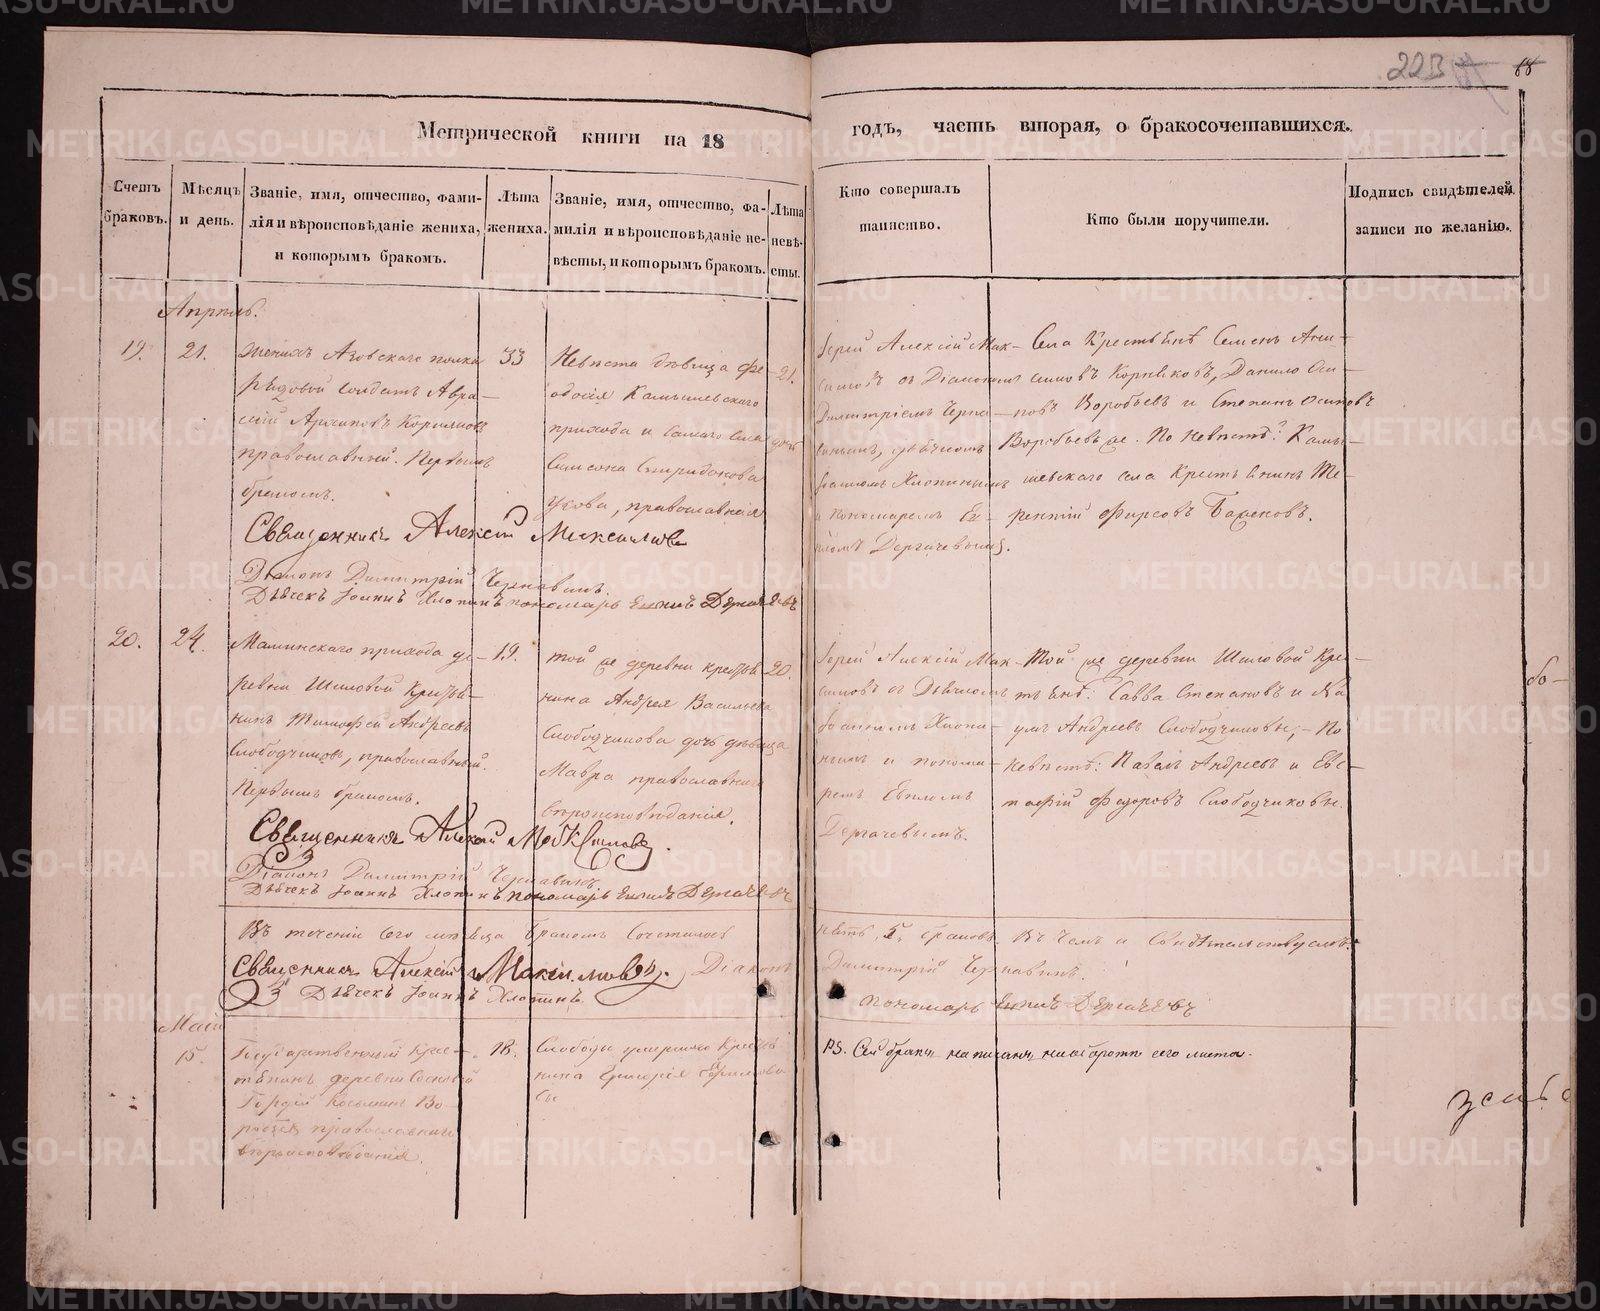 223
88
Метрической книги на 18
годъ, часть вторая, о бракосочетавшихся.
Счетъ браковъ.
Мѣсяцъ и день.
Званіе, имя, отчество, фами-
лія и вѣроисповѣданіе жениха,
и которымъ бракомъ.
Лѣта
жениха.
Званіе, имя, отчество, фа-
милія и вѣроисповѣданіе не-
вѣсты, и которымъ бракомъ.
Лѣта
невѣ-
сты.
Кто совершалъ
таинство.
Кто были поручители.
Подпись свидѣтелей
записи по желанію.
Апрель.
19.
21.
Женихъ Азовскаго полка
рядовой солдатъ Авра-
православный. Первымъ
бракомъ.
33
Невѣста дѣвица Ѳе-
одосія Камышевскаго
прихода и самаго села
Самсона Спиридонова
Ужова, православная
21.
дочь
Іерей Алексій Мак-
симовъ съ Діакономъ
Димитріемъ Черна-
винымъ, дьячкомъ
Іоанномъ Хлопинымъ
и пономаремъ Ев-
пломъ Дергачевымъ.
Села Крестьянъ Семенъ Ани-
симовъ Корняковъ, Данило Оси-
повъ Воробьевъ и Степанъ Осиповъ
Воробьевъ же. По невѣстѣ: Камы-
шевскаго села Крестьянинъ Те-
рентій Фирсовъ
Священникъ Алексій Максимовъ
Діаконъ Димитрій Чернавинъ.
Дьячекъ Іоаннъ Хлопинъ пономарь Евплъ Дергачевъ
20.
24.
Маминскаго прихода де-
ревни Шиловой Кресть-
нинъ Тимофей Андреевъ
Слободчиковъ, православный.
Первымъ бракомъ.
19.
той же деревни крестья-
нина Андрея Васильева
Слободчикова дочь дѣвица
Мавра православнаго
вѣроисповѣданія.
20.
Іерей Алексій Мак-
симовъ съ Дьячкомъ
Іоанномъ Хлопи-
нымъ и понома-
ремъ Евпломъ
Дергачевымъ.
Той же деревни Шиловой Кре-
стьянѣ: Савва Степановъ и На
умъ Андреевъ Слободчиковы, - По
Невѣстѣ: Павелъ Андреевъ и Евс-
тафій Федоровъ Слободчиковы.
Священникъ Алексій Максимовъ.
Діаконъ Димитрій Чернавинъ
Дьячекъ Іоаннъ Хлопинъ пономарь Евплъ Дергачевъ
Въ теченіи сего мѣсяца бракомъ сочеталось
пять, 5, браковъ. Въ чемъ и свидѣтельствуемъ:
Священникъ Алексій Максимовъ. Діаконъ
Димитрій Чернавинъ.
Дьячекъ Іоаннъ Хлопинъ.
пономарь Евплъ Дергачевъ
Май
15.
Государственный крес-
тьянинъ деревни Сосновой
Гордій Косьминъ Во-
робьевъ православнаго
вѣроисповѣданія.
18.
Слободы умершаго Кресть-
нина Григорія Ефимова
PS. Сей бракъ написанъ на оборотѣ сего листа.
бо-